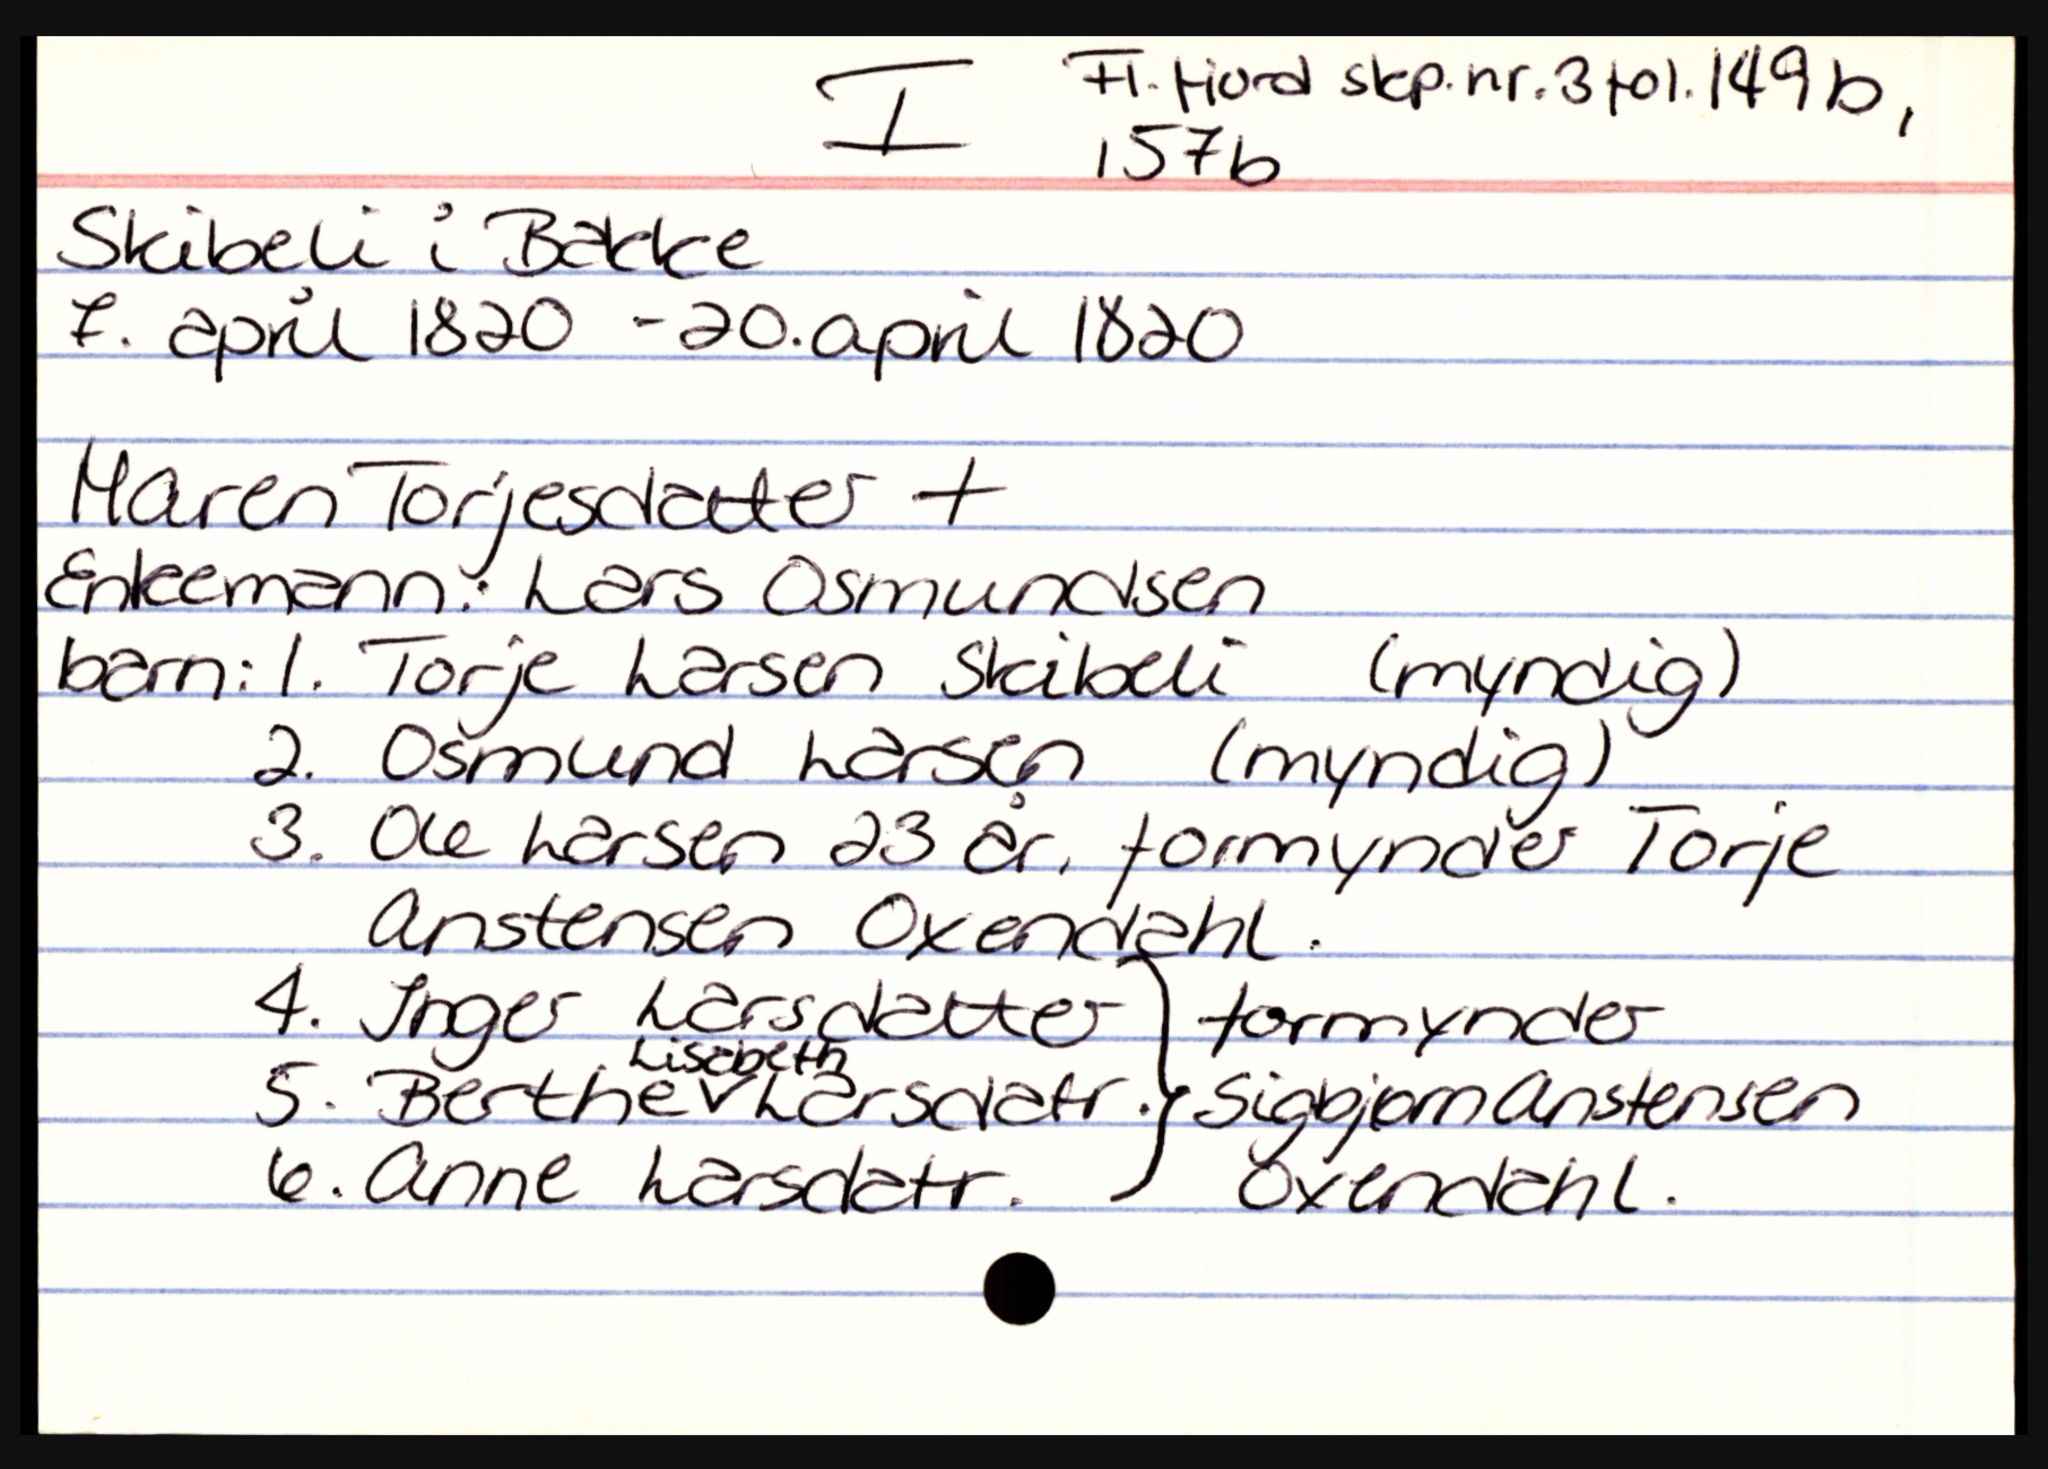 I Fl. Hord skp. nr. 3 fol. 149b,
157b
Skibeli i Bakke
7. april 1820 - 20. april 1820
Maren Torjesdatter +
Enkemann: Lars Osmundsen
barn: 1. Torje Larsen Skibeli (myndig)
2. Osmund Larsen (myndig)
3. Ole Larsen 23 år, formynder Torje
Anstensen Oxendahl.
4. Inger Larsdatter } formynder
5. Berthe Lisabeth Larsdatr. } Sigbjørn Anstensen
6. Anne Larsdatr. } Oxendahl.